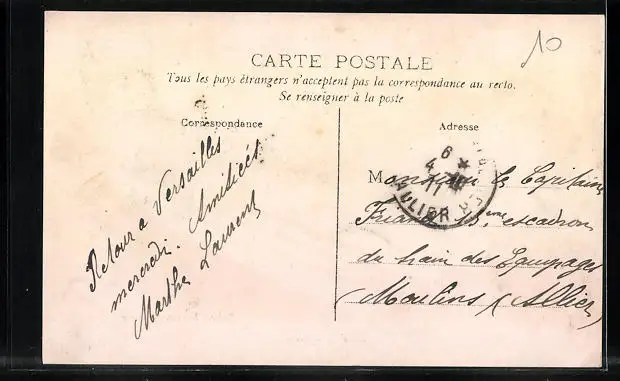 10
CARTE POSTALE
Tous les pays étrangers n'acceptent pas la correspondance au recto.
Se renseigner à la poste
Correspondance
Retour a Versailles
mercredi. Amitiés
Marthe Laurent
Adresse
6 *
4
Monsieur le Capitaine
escadron
du train des Equipages
Moulins (Allier)